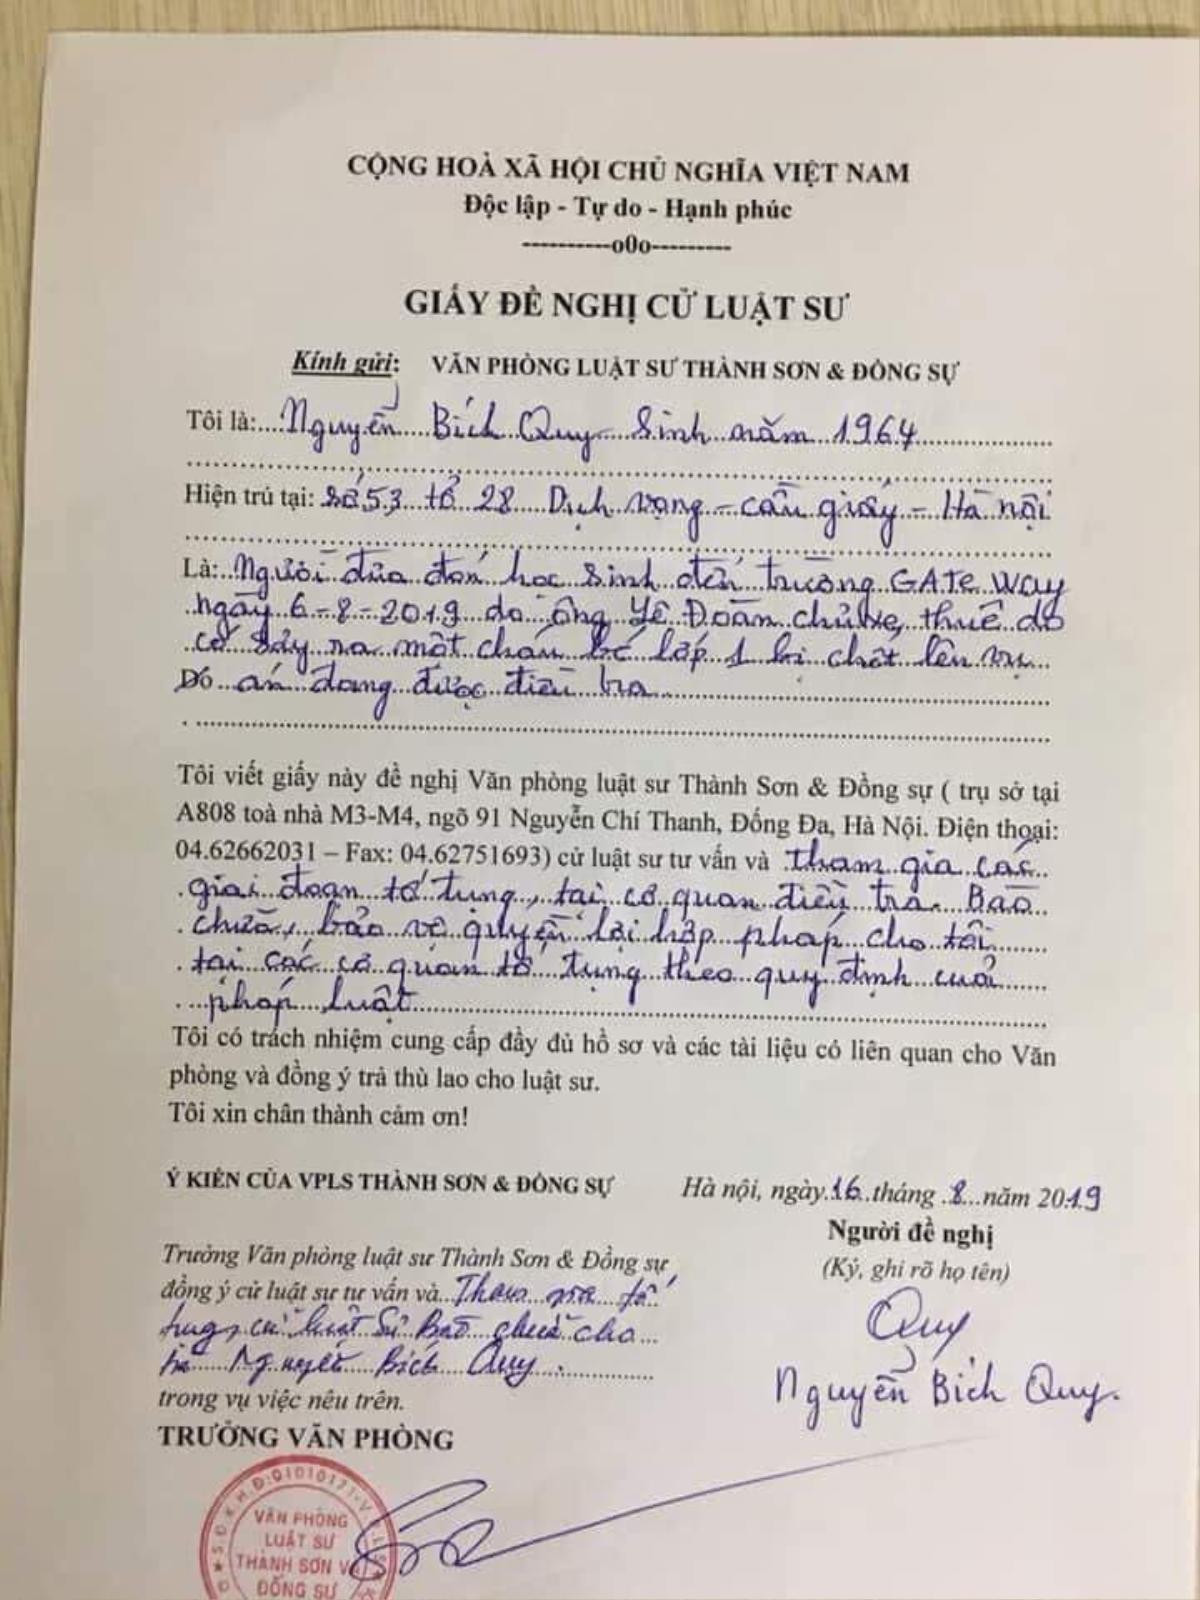 CỘNG HOÀ XÃ HỘI CHỦ NGHĨA VIỆT NAM
Độc lập - Tự do - Hạnh phúc
----------o0o---------
GIẤY ĐỀ NGHỊ CỬ LUẬT SƯ
Kính gửi: VĂN PHÒNG LUẬT SƯ THÀNH SƠN & ĐỒNG SỰ
Tôi là: Nguyễn Bích Quy Sinh năm 1964
Hiện trú tại: số 53 tổ 28 Dịch vọng - cầu giấy - Hà nội
Là: Người đưa đón học sinh đến trường GATe way
ngày 6-8-2019 do ông Yê Đoàn chủ xe, thuê do
có sảy ra một cháu bé lớp 1 bị chết lên vụ
Đó án đang được điều tra
Tôi viết giấy này đề nghị Văn phòng luật sư Thành Sơn & Đồng sự ( trụ sở tại
A808 toà nhà M3-M4, ngõ 91 Nguyễn Chí Thanh, Đống Đa, Hà Nội. Điện thoại:
04.62662031 – Fax: 04.62751693) cử luật sư tư vấn và tham gia các
giai đoạn tố tụng, tại cơ quan điều tra. Bào
chữa, bảo vệ quyền lợi hợp pháp cho tôi
tại các cơ quan tố tụng theo quy định cuả
pháp luật
Tôi có trách nhiệm cung cấp đầy đủ hồ sơ và các tài liệu có liên quan cho Văn
phòng và đồng ý trả thù lao cho luật sư.
Tôi xin chân thành cảm ơn!
Ý KIẾN CỦA VPLS THÀNH SƠN & ĐỒNG SỰ
Hà nội, ngày 16 tháng 8 năm 2019
Người đề nghị
(Ký, ghi rõ họ tên)
Trưởng Văn phòng luật sư Thành Sơn & Đồng sự
đồng ý cử luật sư tư vấn và Tham gia tố
tụng, cử luật sư Bào chữa cho
bà Nguyễn Bích Quy.
trong vụ việc nêu trên.
TRƯỞNG VĂN PHÒNG
Quy
Nguyễn Bích Quy.
S.Đ.K.H.Đ:01010171
VĂN PHÒNG
LUẬT SƯ
THÀNH SƠN VÀ
ĐỒNG SỰ